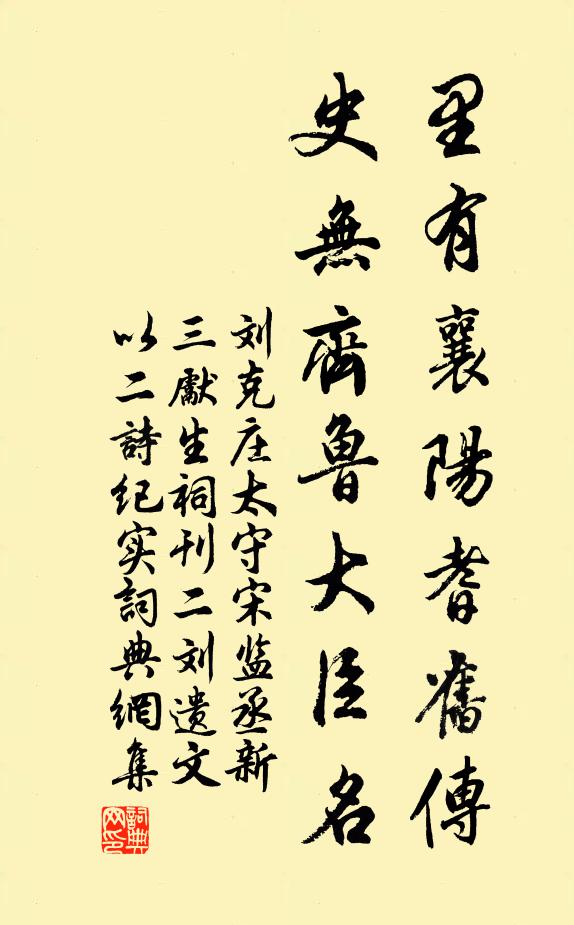 里有襄陽耆舊傳
史無齊魯大臣名
刘克庄太守宋监丞新
三獻生祠刊二刘遗文
以二詩纪实詞典網集
詞典网印